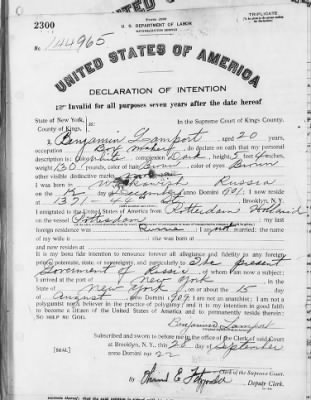 TRIPLICATE
2300
U. S. DEPARTMENT OF LABOR
NATURALIZATION SERVICE
No. 144965
UNITED STATES OF AMERICA
DECLARATION OF INTENTION
Invalid for all purposes seven years after the date hereof
State of New York,
County of Kings, ss: In the Supreme Court of Kings County.
I, Benjamin Lamport, aged 20 years,
occupation Box maker, do declare on oath that my personal
description is: Color white, complexion Dark, height 5 feet 4 inches,
weight 130 pounds, color of hair Brown, color of eyes Brown
other visible distinctive marks
I was born in Russia
on the day of December, anno Domini 1901; I now reside
at 1371-46 St, Brooklyn, N. Y.
I emigrated to the United States of America from Rotterdam Holland
on the vessel; my last
foreign residence was Russia. I am not married; the name
of my wife is; she was born at
and now resides at
It is my bona fide intention to renounce forever all allegiance and fidelity to any foreign
prince, potentate, state, or sovereignty, and particularly to The present
Government of Russia, of whom I am now a subject;
I arrived at the port of New York, in the
State of New York, on or about the 15 day
of August, anno Domini 1909; I am not an anarchist; I am not a
polygamist nor a believer in the practice of polygamy; and it is my intention in good faith
to become a citizen of the United States of America and to permanently reside therein:
SO HELP ME GOD.
Benjamin Lamport
Subscribed and sworn to before me in the office of the Clerk of said Court
at Brooklyn, N. Y., this 20 day of September
[SEAL] anno Domini 1922
Clerk of the Supreme Court.
By, Deputy Clerk.